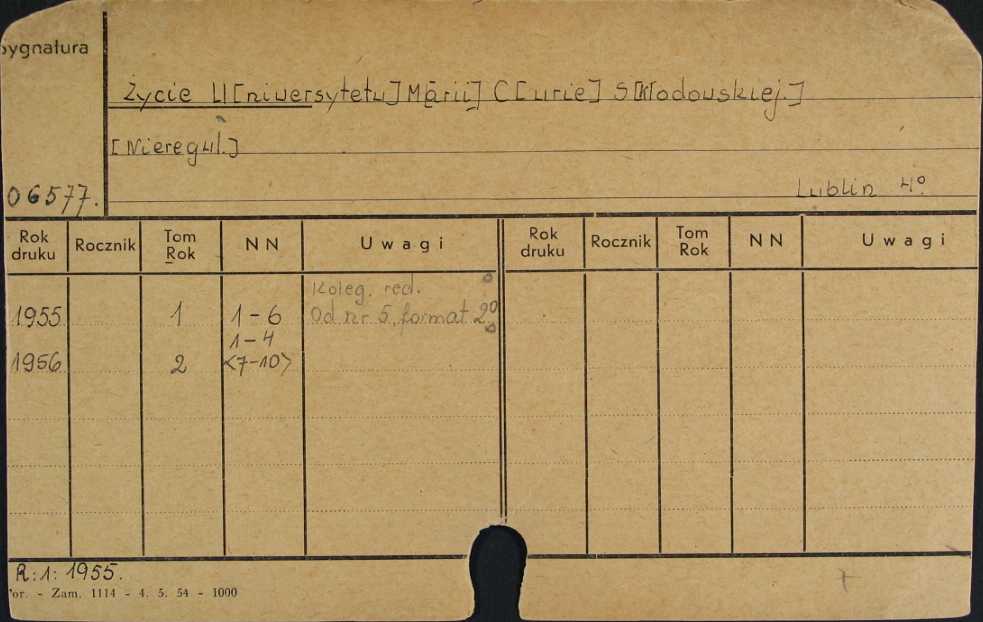 Sygnatura
Życie U[niwersytetu] Marii] C[urie] S[kłodowskiej.]
[Nieregul.]
06577.
Lublin 4º
Rok druku Rocznik Tom Rok NN Uwagi Rok druku Rocznik Tom Rok NN Uwagi
Koleg. red.
1955 1 1-6 Od nr 5, format 2º
1-4
1956 2 <7-10>
R:1: 1955.
or. - Zam. 1114 - 4. 5. 54 - 1000